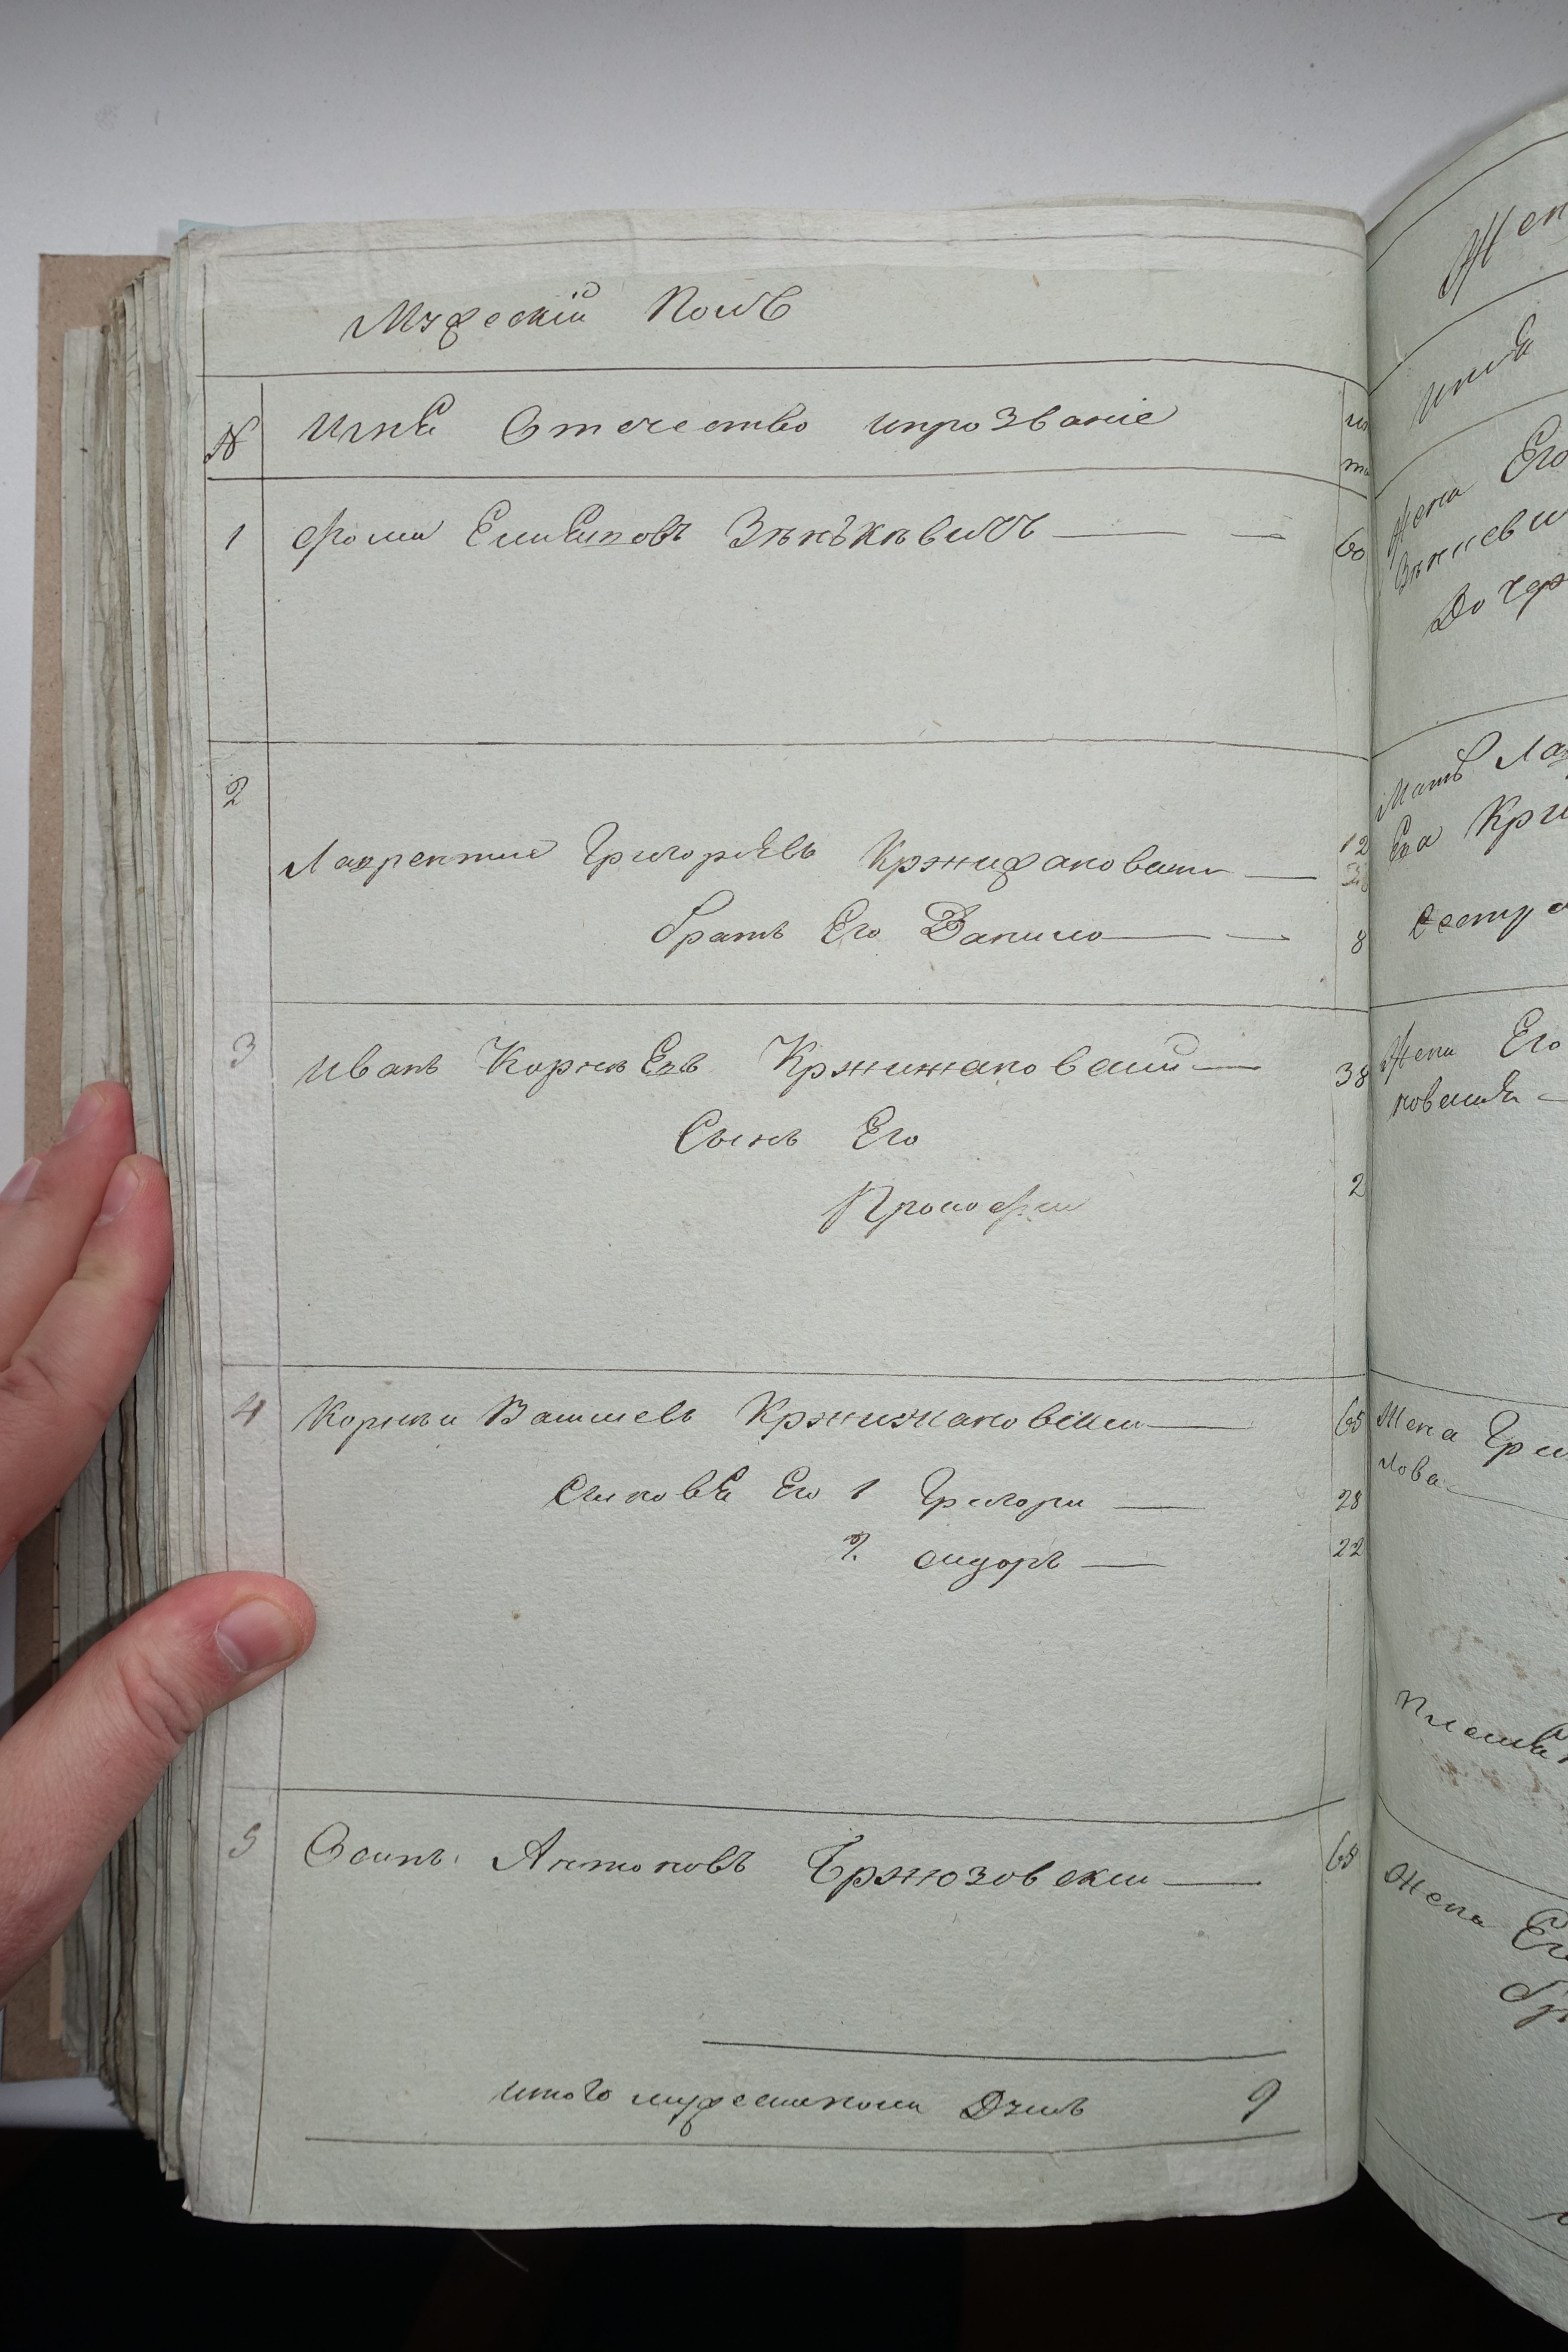 Мужескій Полъ
№ Имя Отечество ипрозваніе
1 Фома Зѣнѣкѣвичъ 60
2
Лаврентие Григорьевъ Кржижановски 12
братъ Его Данило 8
3 Иванъ Корнѣевъ Кржижановский 38
Сынъ Его
Прокофи 2
4 Корнѣи Васильевъ Кржижановски 65
Сыновья Его 1 Григори 28
2 сидоръ 22
5 Осипъ Антоновъ Бржозовски 68
итого мужеска пола Душъ 9
Жен
имя
Жена Его
Зѣниеви
Дочер
Мать Ла
Ева Кри
Сестра
Жена Его
новская
Жена Гри
лова
Жена Ег